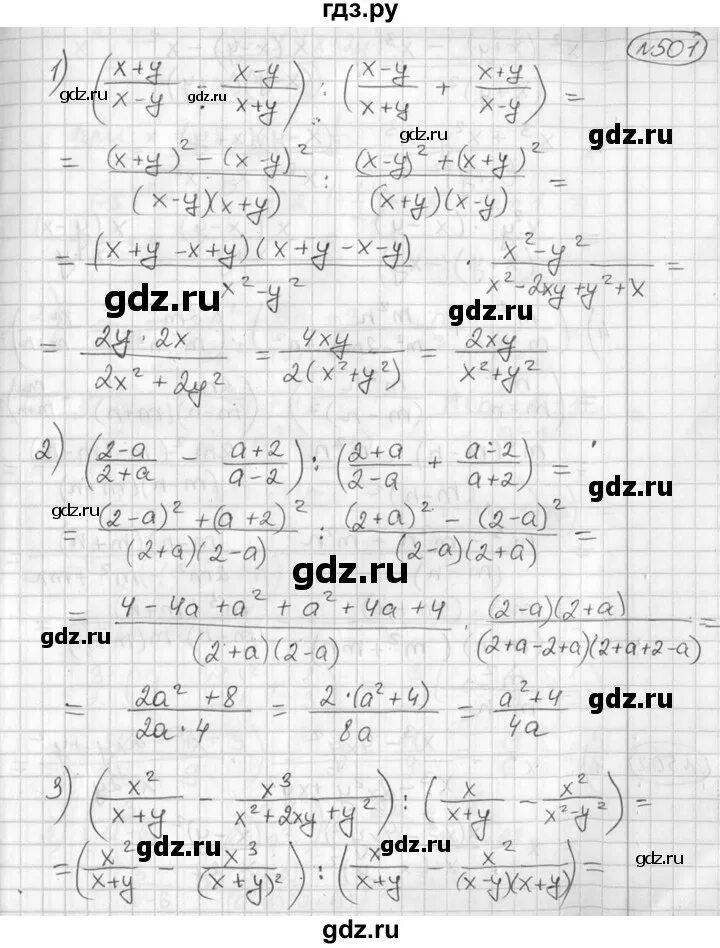 гдз.ру
№501
1) ((x+y)/(x−y) − (x−y)/(x+y)) : ((x−y)/(x+y) + (x+y)/(x−y)) =
gdz.ru gdz.ru gdz.ru gdz.ru
= ((x+y)² − (x−y)²)/((x−y)(x+y)) : ((x−y)² + (x+y)²)/((x+y)(x−y)) =
= ((x+y −x+y)(x+y −x−y))/(x²−y²) · (x²−y²)/(x²−2xy+y²+x =
gdz.ru gdz.ru
= (2y·2x)/(2x²+2y²) = 4xy/(2(x²+y²)) = 2xy/(x²+y²)
2) ((2−a)/(2+a) − (a+2)/(a−2)) : ((2+a)/(2−a) + (a−2)/(a+2)) =
gdz.ru gdz.ru
= ((2−a)² + (a+2)²)/((2+a)(2−a)) : ((2+a)² − (2−a)²)/((2−a)(2+a)) =
gdz.ru
= (4−4a+a²+a²+4a+4)/((2+a)(2−a)) · ((2−a)(2+a))/((2+a−2+a)(2+a+2−a)) =
gdz.ru
= (2a²+8)/(2a·4) = (2·(a²+4))/8a = (a²+4)/4a
gdz.ru
3) (x²/(x+y) − x³/(x²+2xy+y²)) : (x/(x+y) − x²/(x²−y²)) =
gdz.ru gdz.ru
= (x²/(x+y) − x³/(x+y)²) : (x/(x+y) − x²/((x−y)(x+y))) =
gdz.ru
gdz.ru